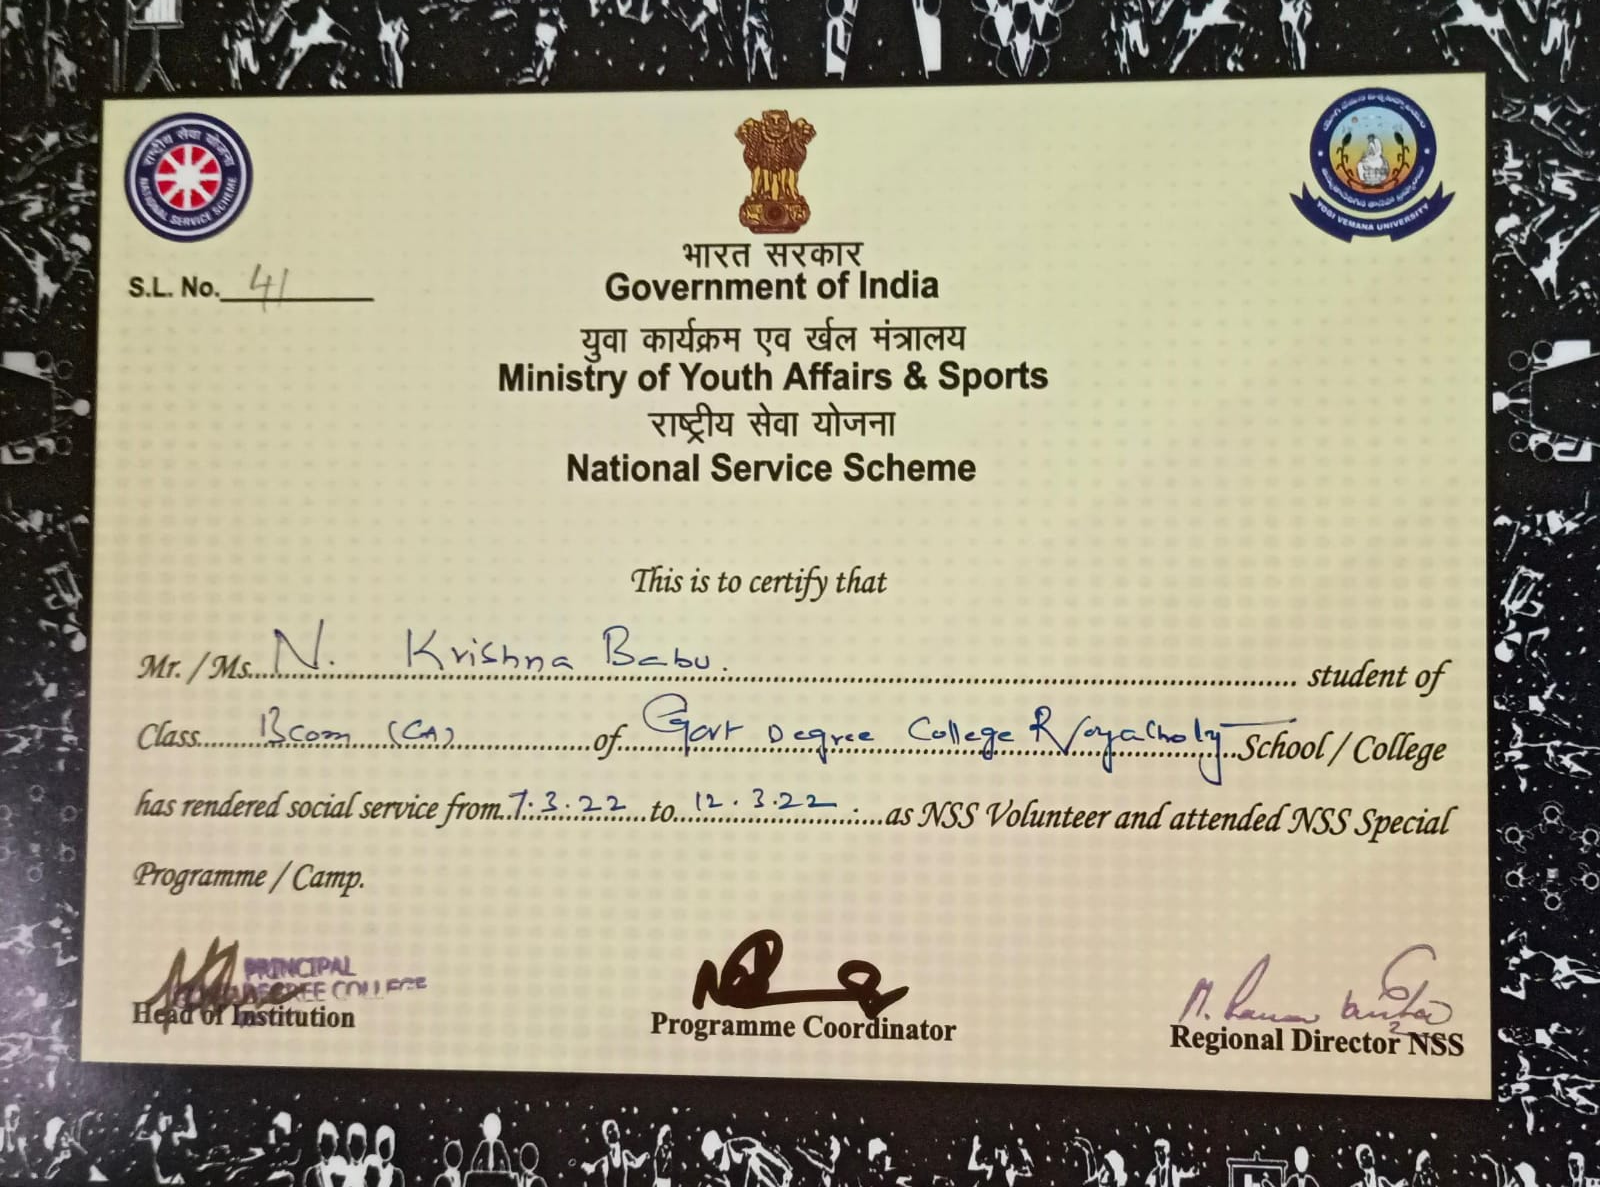 राष्ट्रीय सेवा योजना
NATIONAL SERVICE SCHEME
YOGI VEMANA UNIVERSITY
S.L. No. 41
भारत सरकार
Government of India
युवा कार्यक्रम एव र्खल मंत्रालय
Ministry of Youth Affairs & Sports
राष्ट्रीय सेवा योजना
National Service Scheme
This is to certify that
Mr. / Ms. N. Krishna Babu. student of
Class Bcom (CA) of Govt Degree College School / College
has rendered social service from 7.3.22 to 12.3.22 as NSS Volunteer and attended NSS Special
Programme / Camp.
PRINCIPAL
DEGREE COLLEGE
Head of Institution
Programme Coordinator
Regional Director NSS